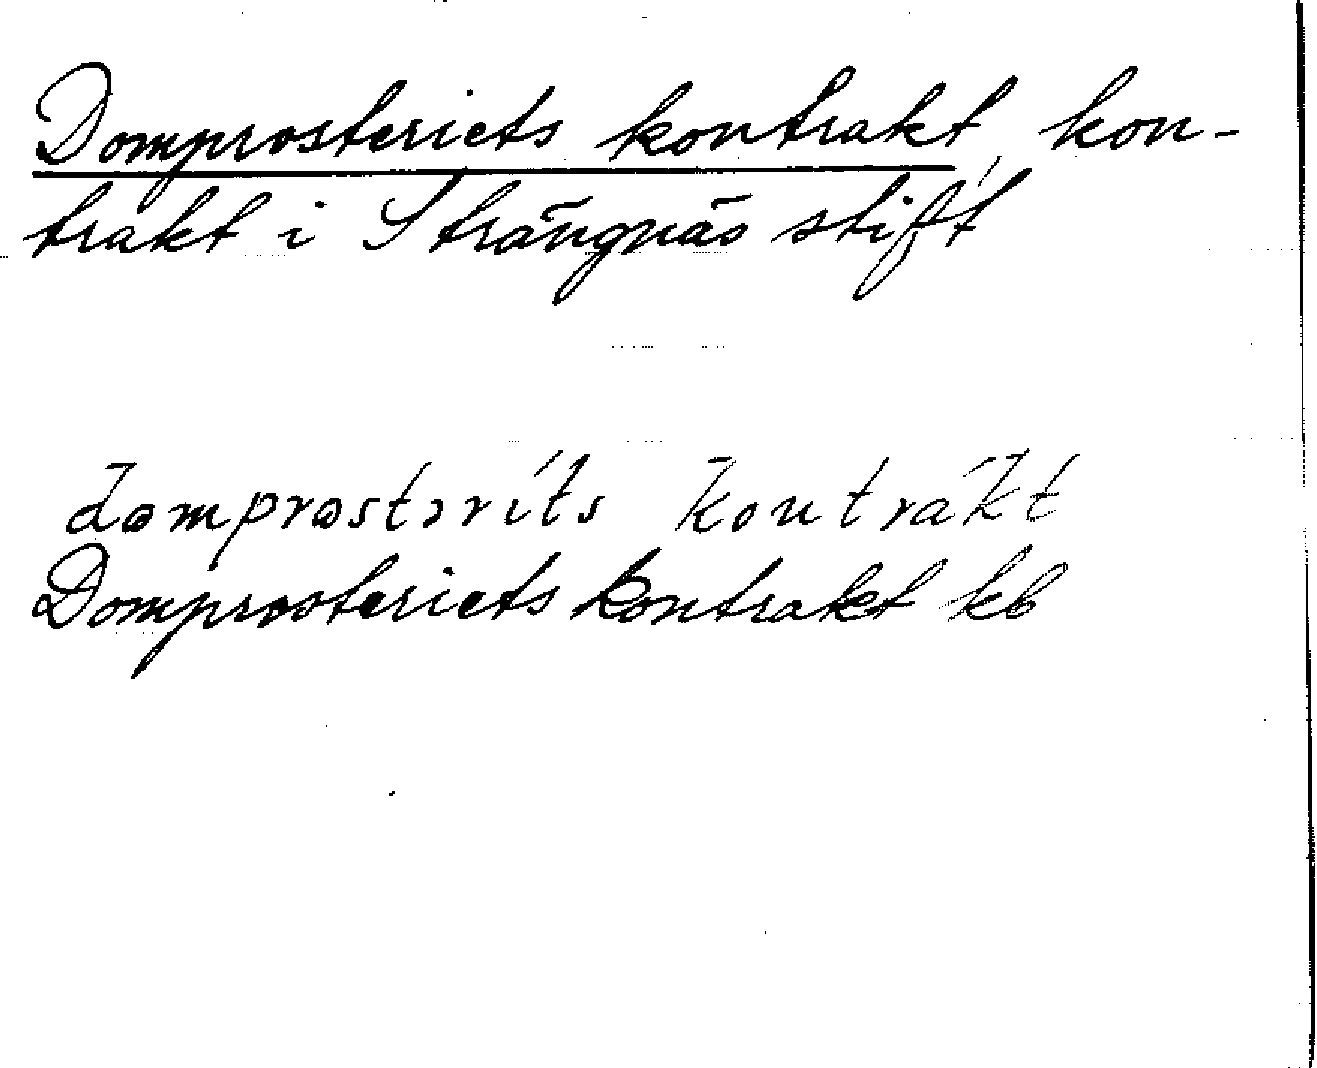 Domprosteriets kontrakt, kon-
trakt i Strängnäs stift
domprostəríts kontrákt
Domprosteriets kontrakt kb